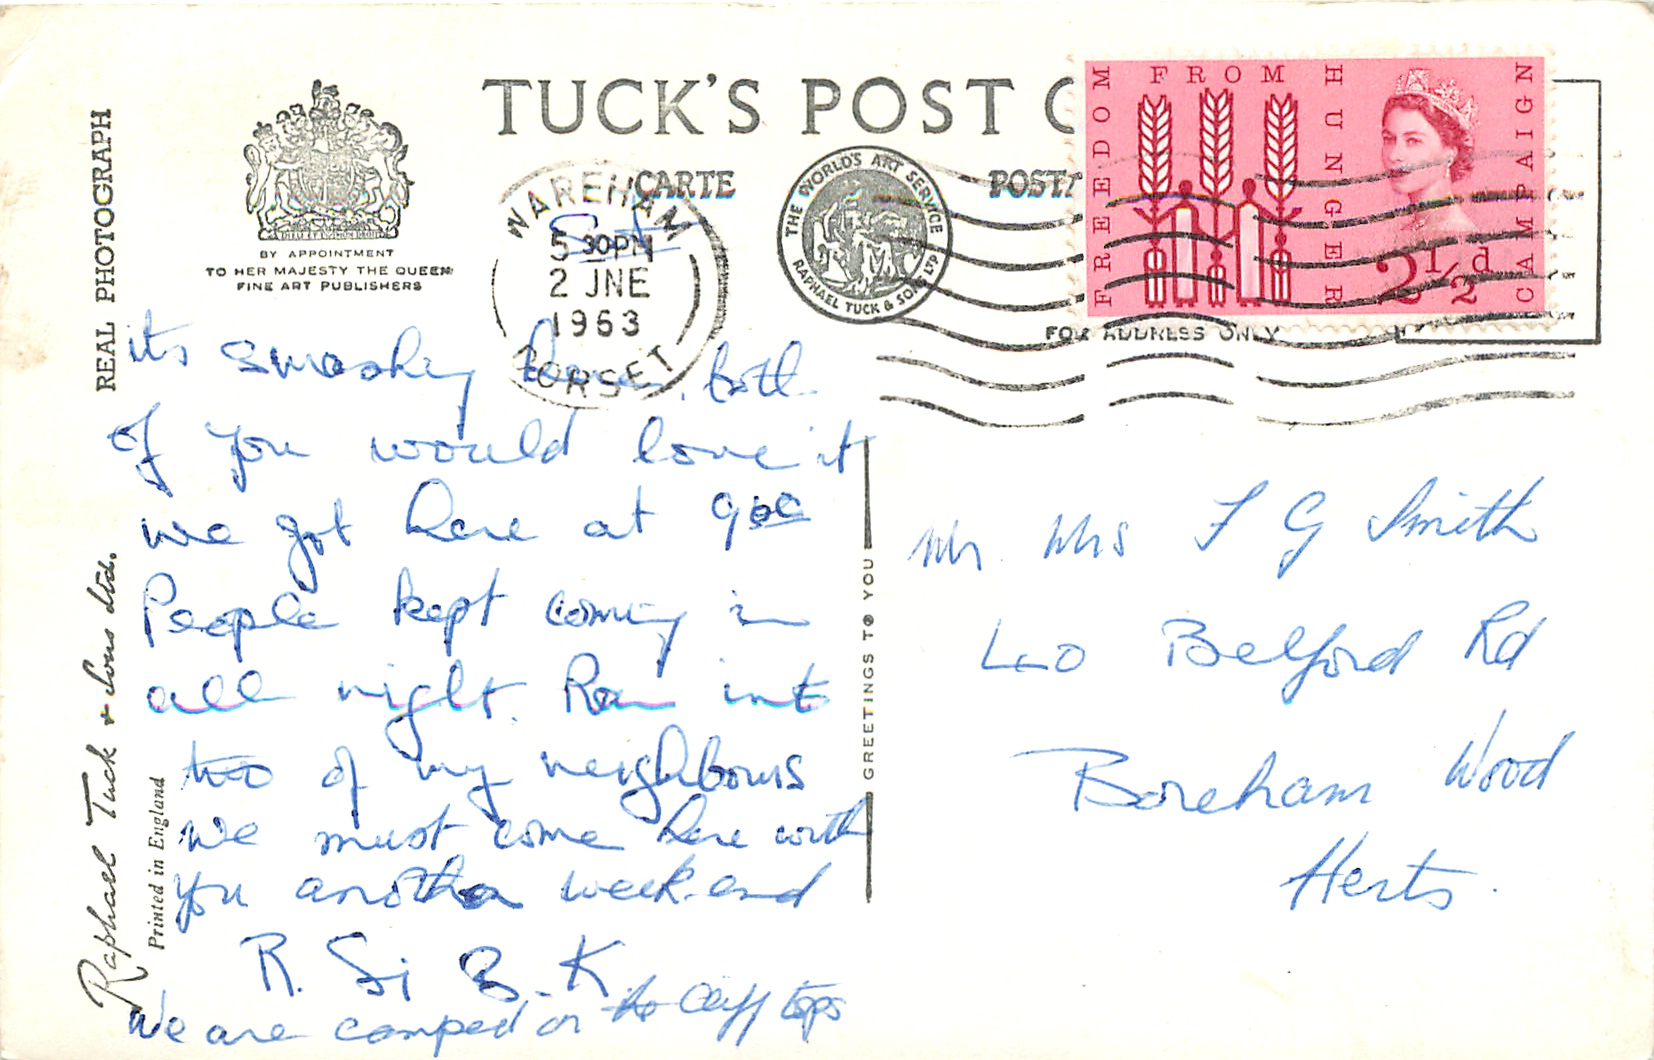 REAL PHOTOGRAPH
BY APPOINTMENT
TO HER MAJESTY THE QUEEN
FINE ART PUBLISHERS
TUCK'S POST C
CARTE POSTA
WAREHAM
5 30PM
2 JNE
1963
DORSET
THE WORLD'S ART SERVICE
RAPHAEL TUCK & SONS LTD
FREEDOM FROM HUNGER CAMPAIGN
2½d
FOR ADDRESS ONLY
its smashing here. both
of you would love it
we got here at 9oc
People kept coming in
all night. Ran into
two of my neighbours
We must come here with
you another week-end
R. Si B. K.
We are camped on the Cliff tops
GREETINGS TO YOU
Mr Mrs F G Smith
40 Belford Rd
Boreham Wood
Herts.
Raphael Tuck & Sons Ltd.
Printed in England